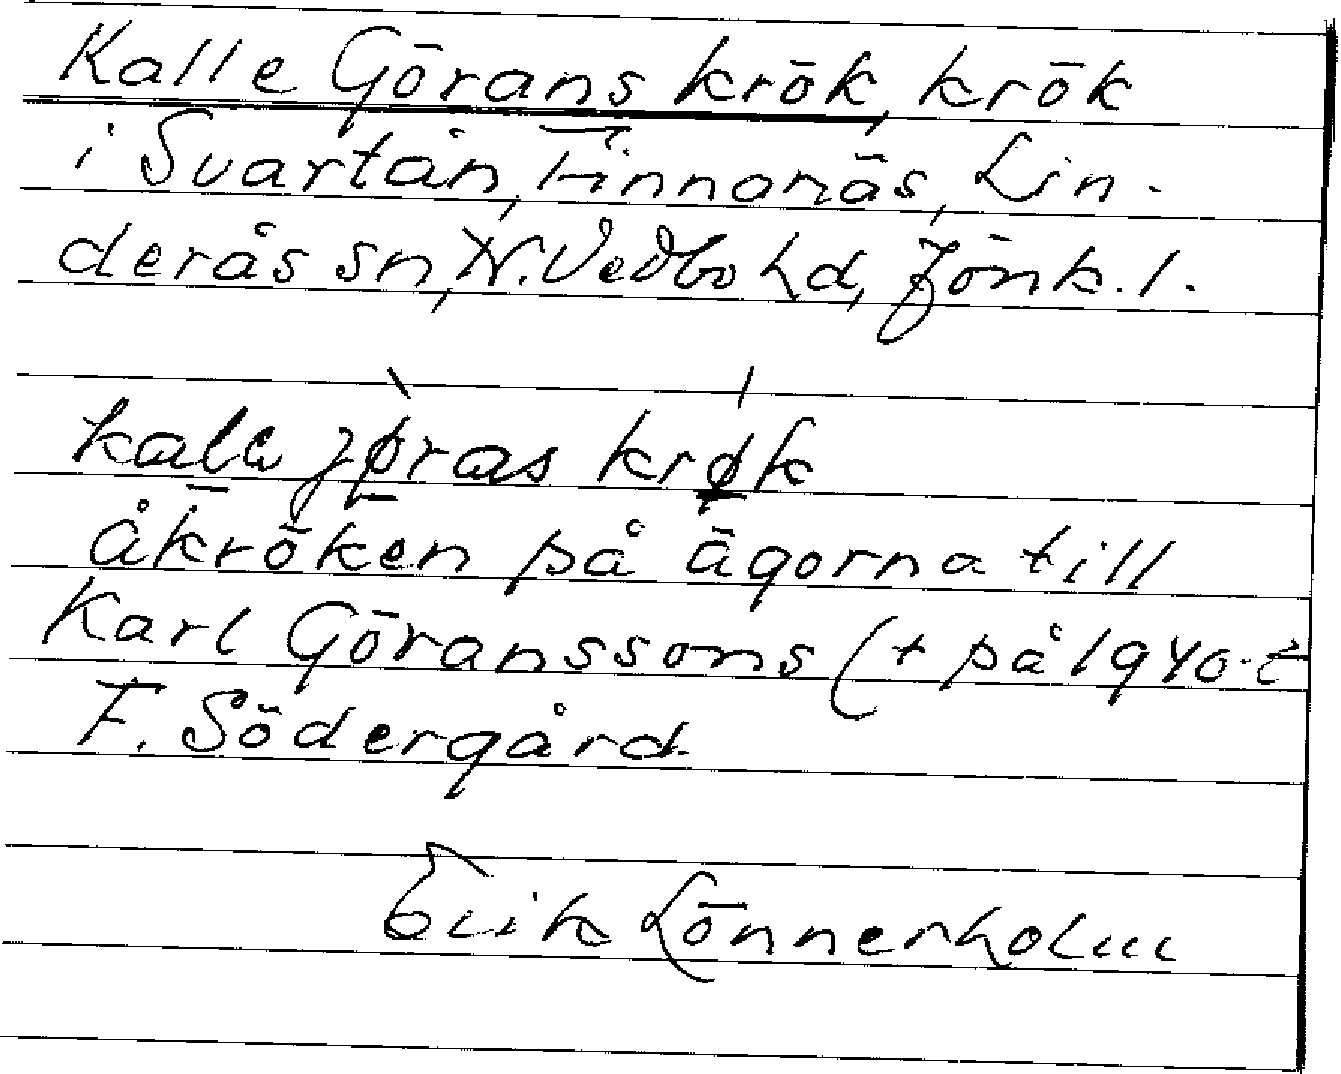 Kalle Görans krök, krök
i Svartån, Finnanäs, Lin-
deräs sn, N. Vedbo hd, Jönk. l.
kalɐ jøras krøk
åkröken på ägorna till
Karl Göranssons (+ på 1940-t
F. Södergård
Erik Lönnerholm